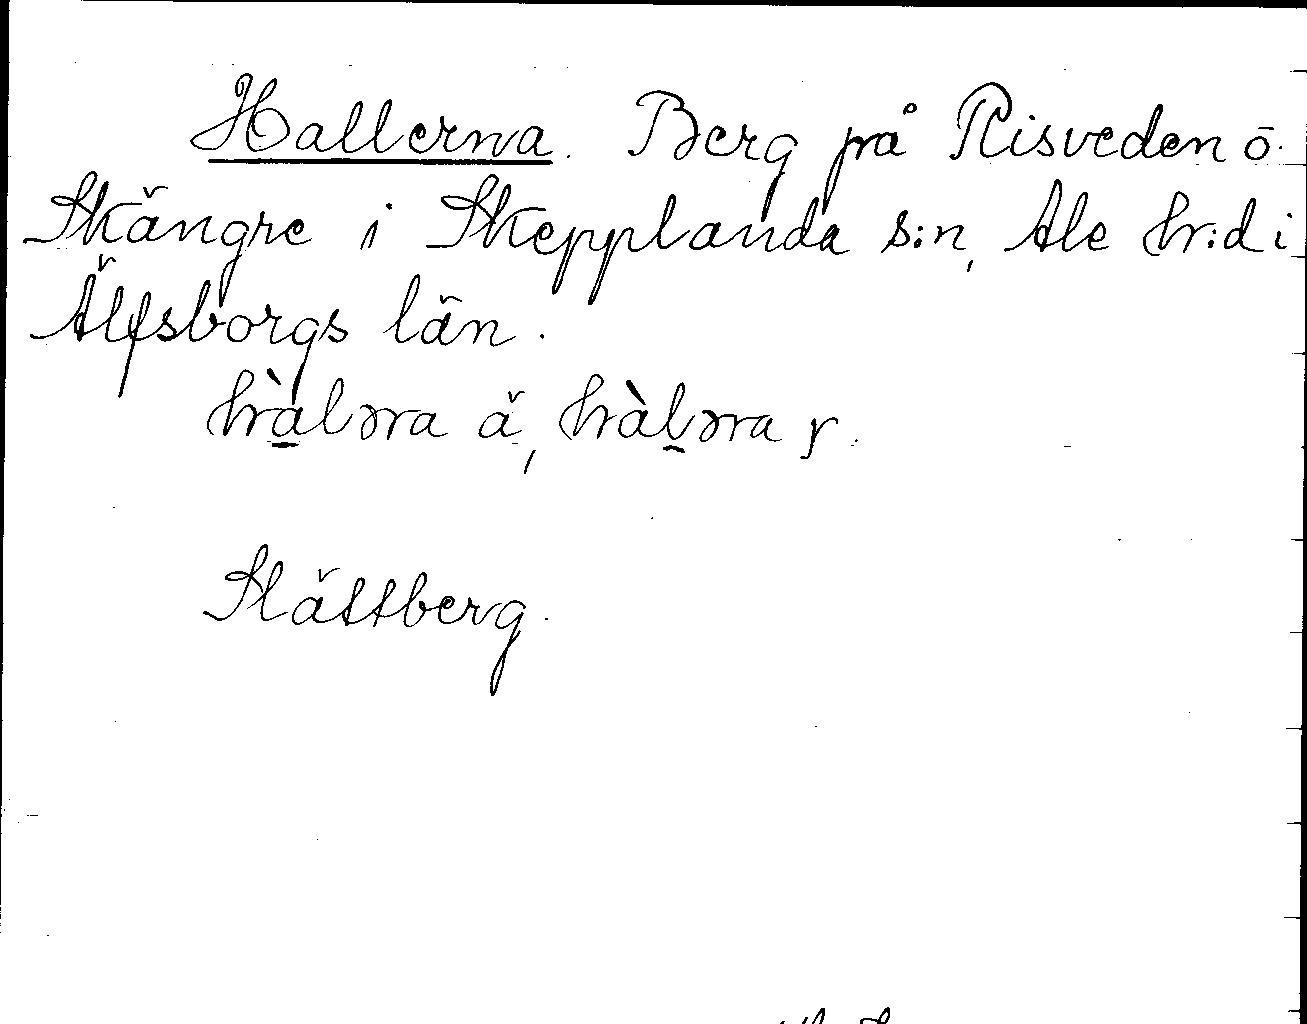 Hallerna. Berg på Risveden ö.
Skängre i Skepplanda s:n, Ale hr:d i
Älfsborgs län.
hàləra ä, hàləra y.
Slättberg.